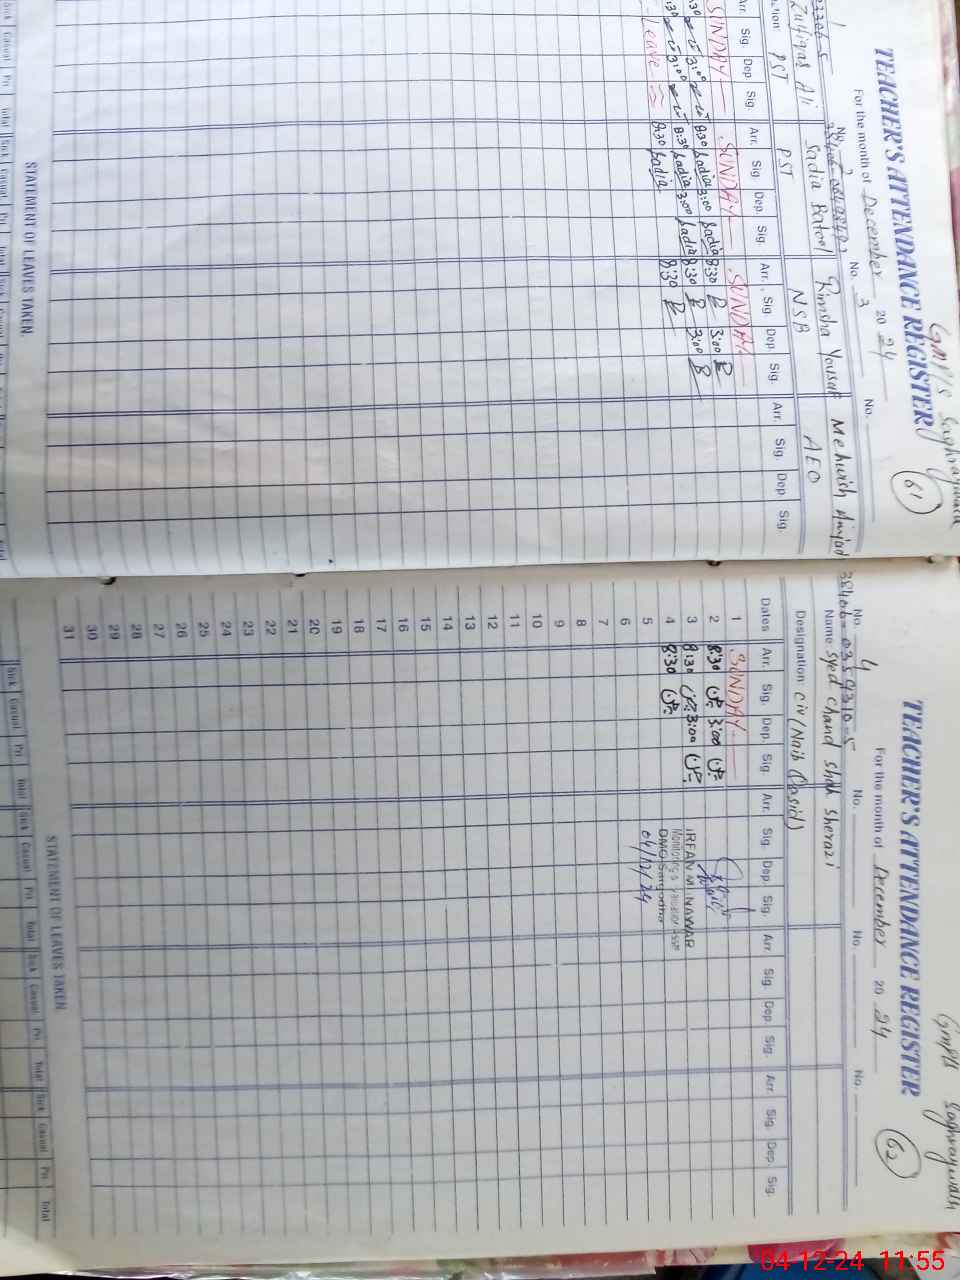 GMPS Saghraywala
TEACHER'S ATTENDANCE REGISTER
61
For the month of December 2024
No. 3
No.
Zulfiqar Ali
Sadia Batool
Rimsha Yousaf
Mehwish Amjad
PST
PST
NSB
AEO
Sig. Dep Sig. Arr. Sig Dep. Sig. Arr. Sig. Dep. Sig. Arr. Sig. Dep Sig.
SUNDAY SUNDAY SUNDAY
3:00 8:30 Sadia 3:00 Sadia 8:30 3:00
3:00 8:30 Sadia 3:00 Sadia 8:30 3:00
Leave 8:30 Sadia 8:30
STATEMENT OF LEAVES TAKEN.
Sick Casual Pri Total Sick Casual Pri Total Sick Casual Pri Total
GMPS Saghraywala
TEACHER'S ATTENDANCE REGISTER
62
For the month of December 2024
No. 4 No. No. No.
38406-0359310-5
Name Syed Chand Shah Sherazi
Designation: Civ (Naib Qasid)
Dates Arr. Sig. Dep. Sig. Arr. Sig. Dep. Sig. Arr Sig. Dep. Sig. Arr Sig. Dep. Sig.
1 SUNDAY
2 8:30 3:00
3 8:30 3:00
4 8:30
5
6
7
8
9
10
11
12
13
14
15
16
17
18
19
20
21
22
23
24
25
26
27
28
29
30
31
IRFAN MUNAWAR
DMO Sargodha
04/12/24
STATEMENT OF LEAVES TAKEN
Sick Casual Pri Total Sick Casual Pri Total Sick Casual Pri Total Sick Casual Pri Total
04-12-24 11:55